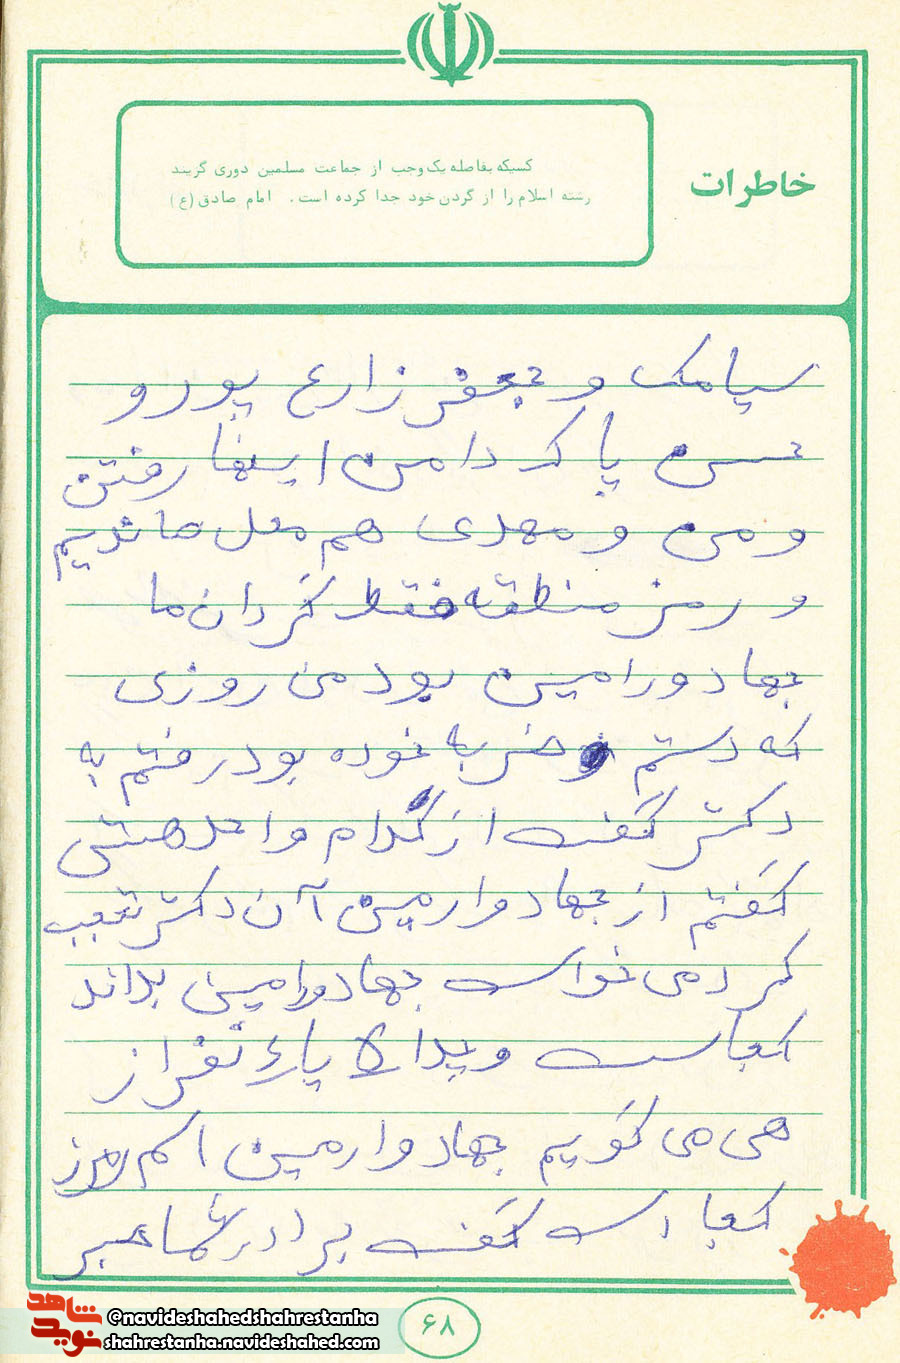 خاطرات
کسیکه بفاصله یک وجب از جماعت مسلمین دوری گزیند
رشته اسلام را از گردن خود جدا کرده است. امام صادق (ع)
سیامک و جعفر زارع پور و
حسن پاکدامن اینها رفتن
و من و مهدی هم محل ماندیم
و رمز منطقه فقط گردان ما
جهاد ورامین بود من روزی
که دستم ضربه خوده بود رفتم به
دکتر گفت از کدام واحد هستی
گفتم از جهاد وارمین آن دکتر تعجب
کرد می خواست جهاد ورامین بداند
کجاست و
نفر از
هی می گویم جهاد وارمین اسم رمز
کجا است گفت برادر شما خبر
۶۸
شاهد
نوید
©navideshahedshahrestanha
shahrestanha.navideshahed.com